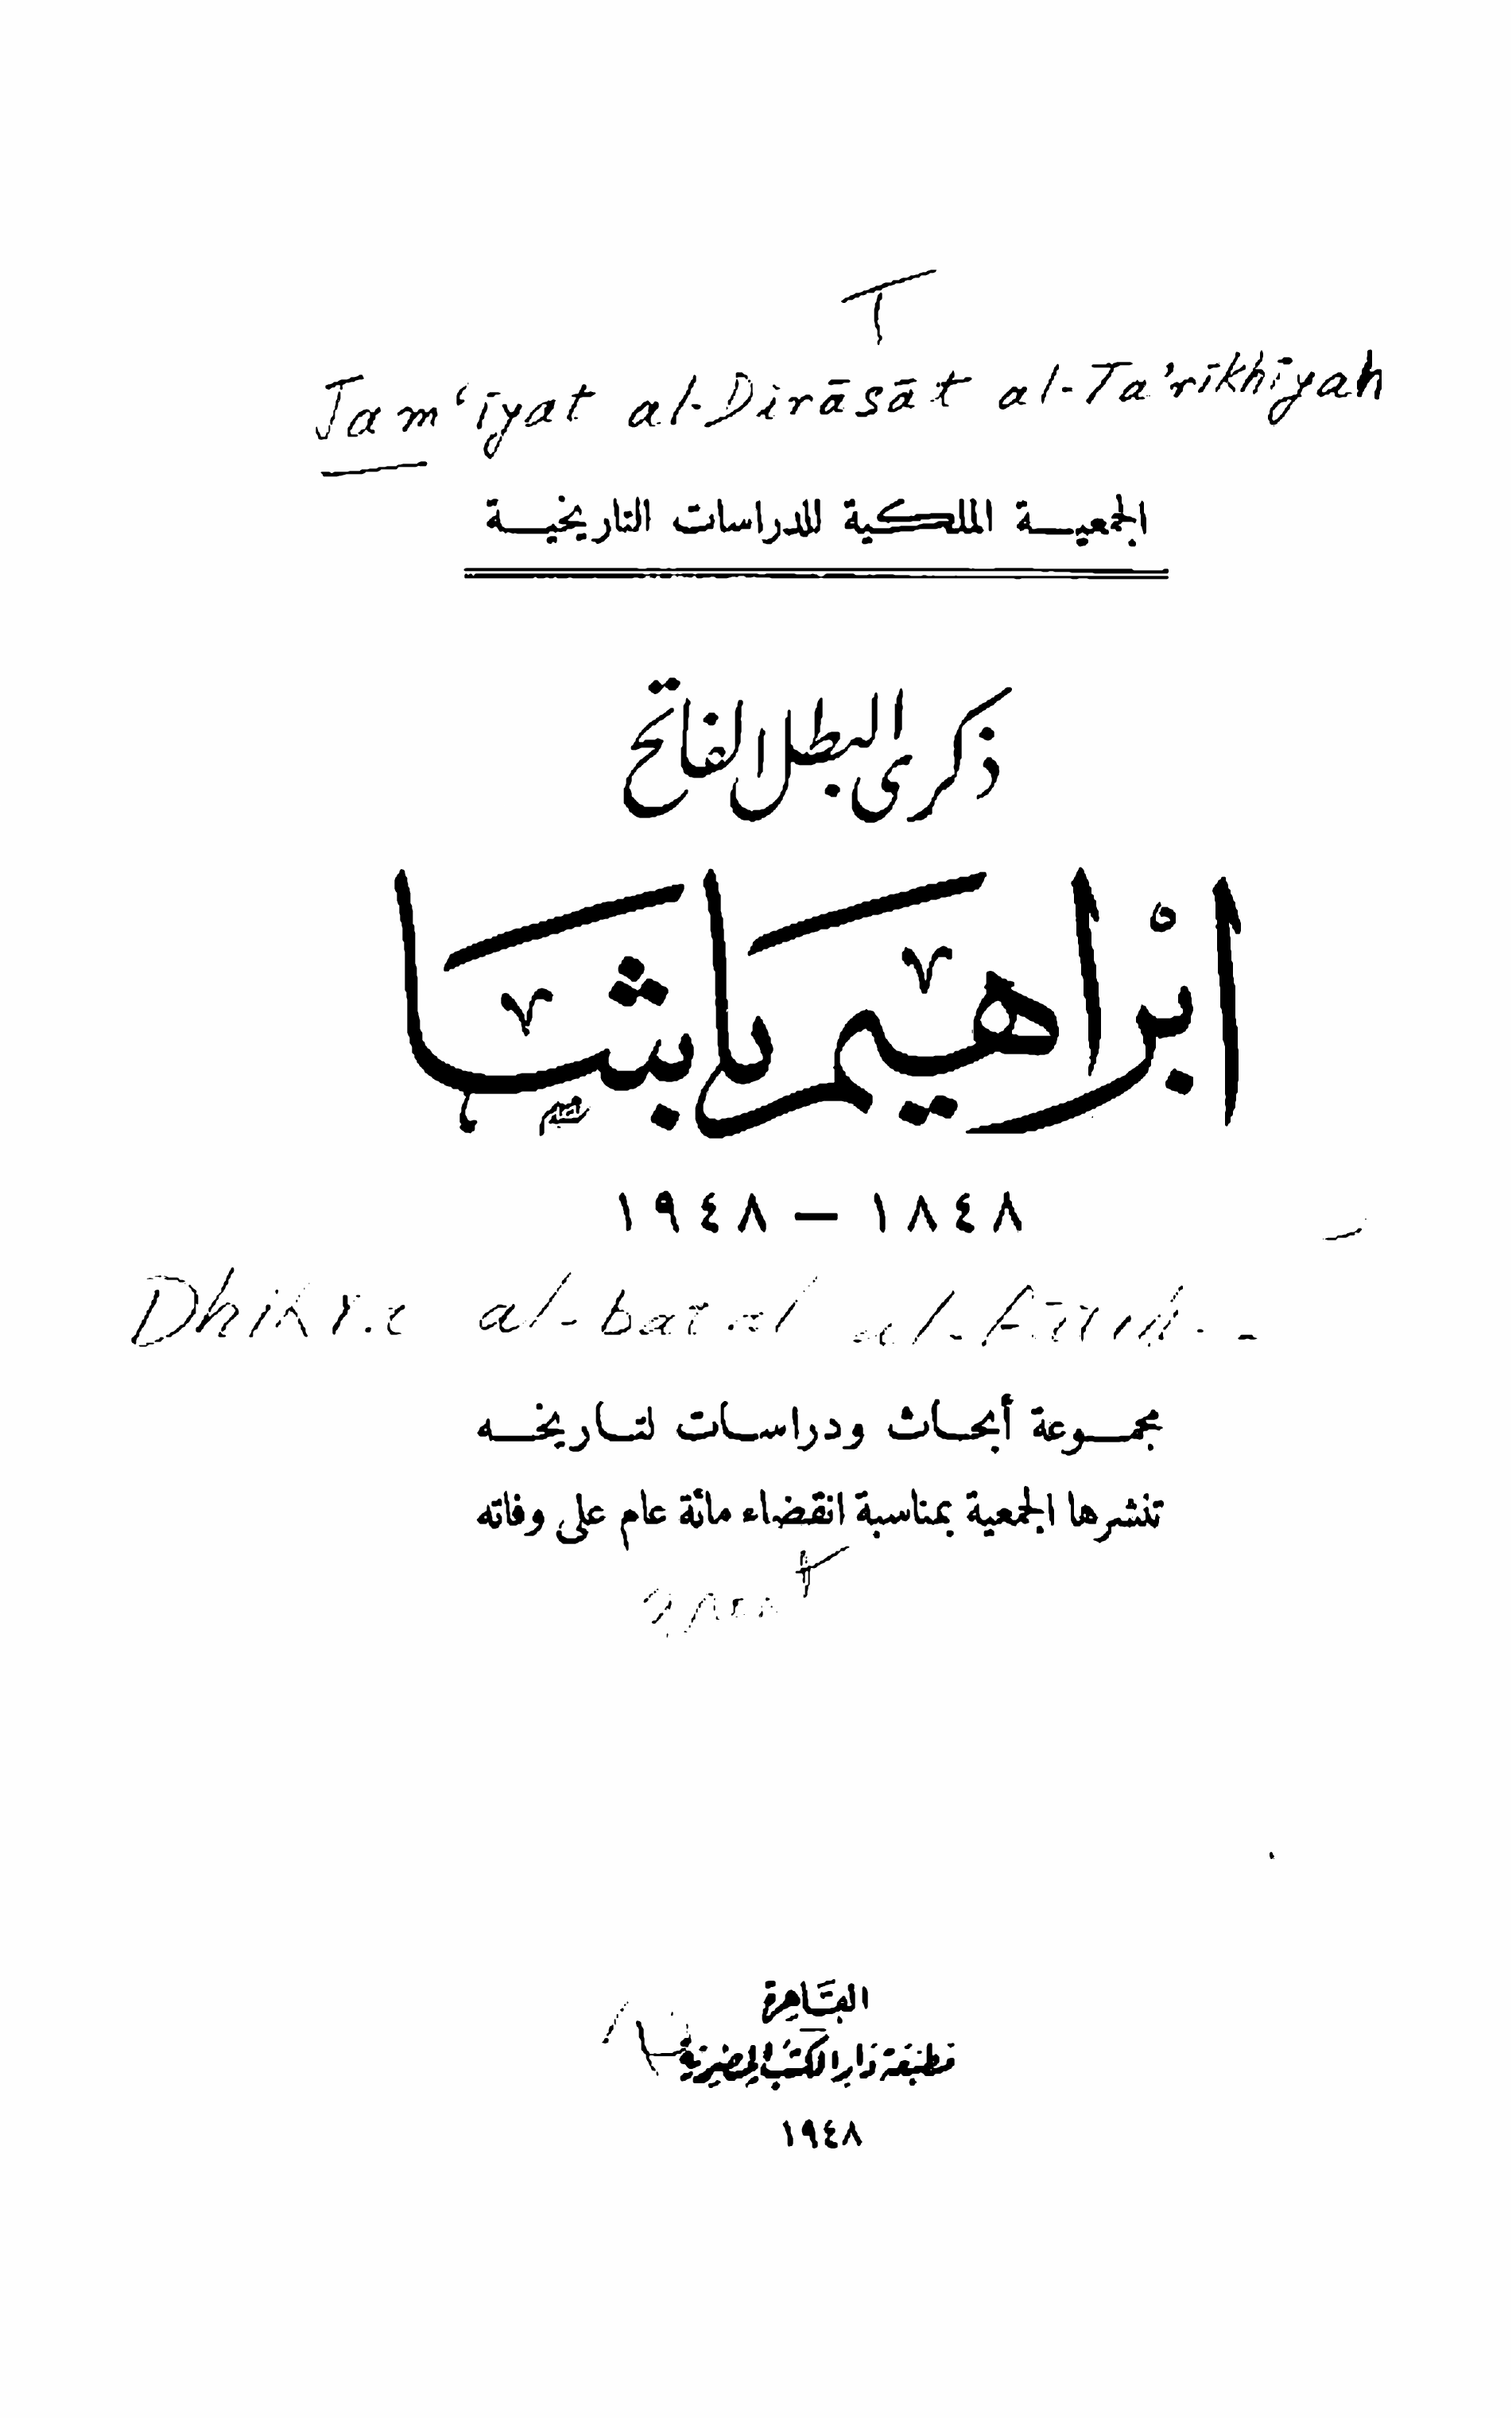 Jam‘īyat al-Dirāsāt al-Ta’rīkhīyah
الجمعية الملكية للدراسات التاريخية
ذكرى البطل الفاتح
ابْراهيم باشا
١٨٤٨ — ١٩٤٨
Dhikra al-batal al-fātih
مجموعة أبحاث ودراسات لتاريخه
تنشرها الجمعية بمناسبة انقضاء مائة عام على وفاته
القاهرة
مطبعة دار الكتب المصرية
١٩٤٨